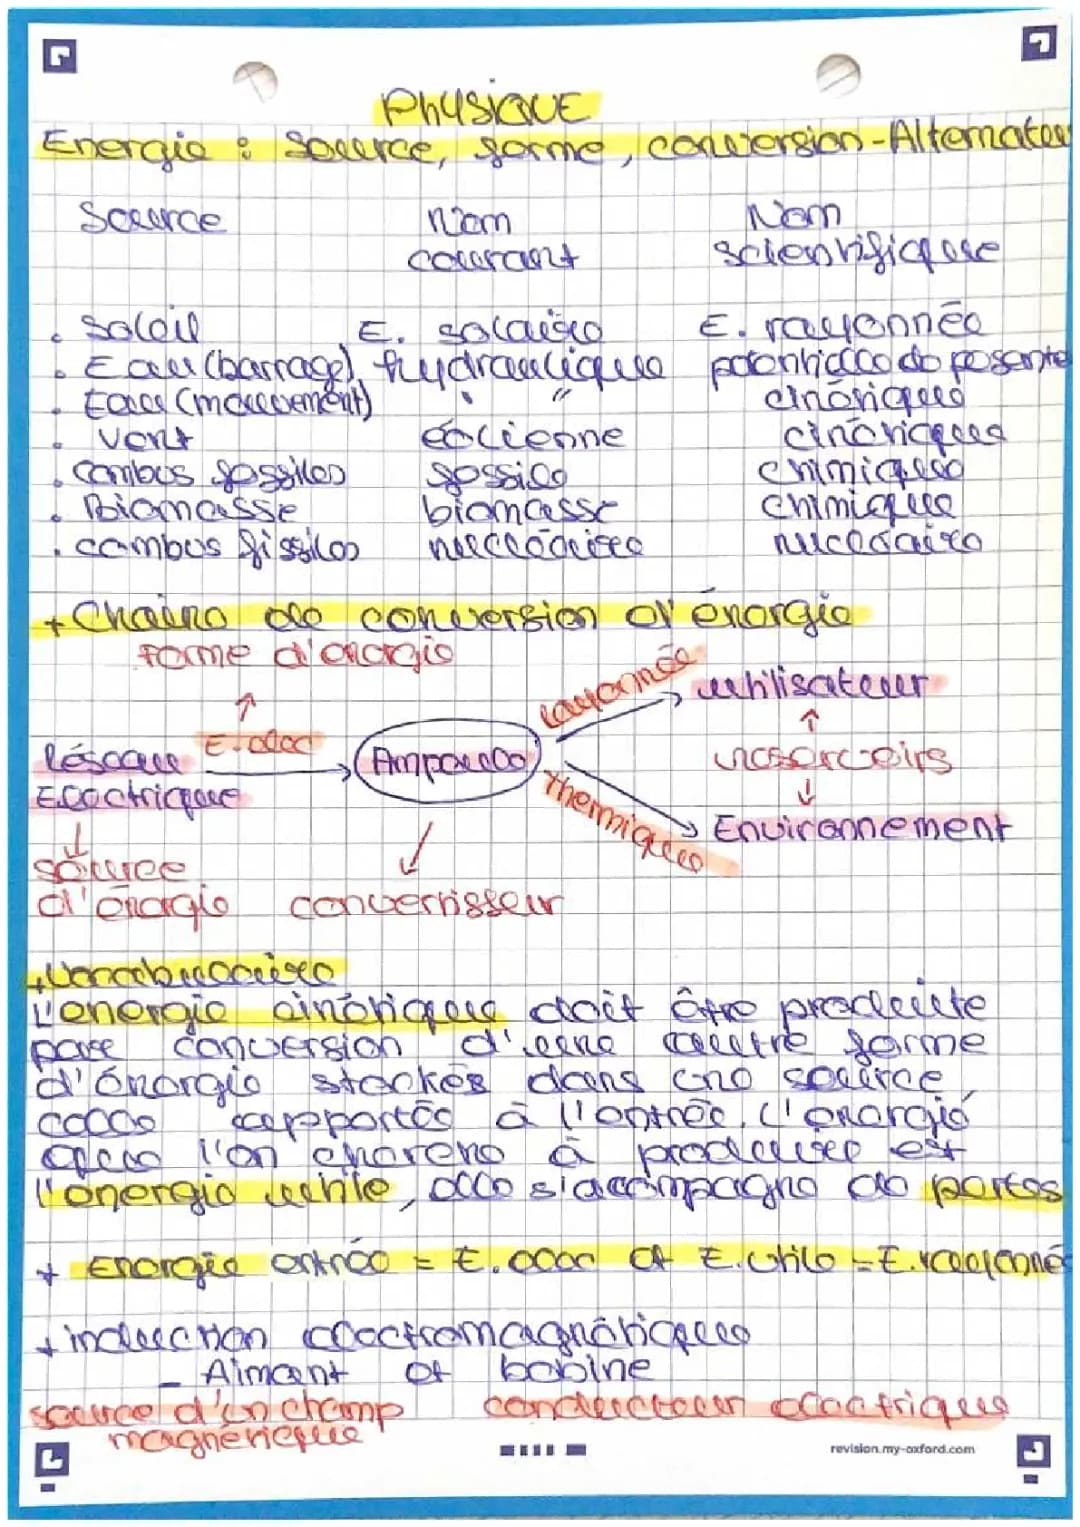 Physique
Energie : Source, forme, conversion-Alternateu
Source Nom Nom
courant scientifique
. Soleil E. solaire E. rayonnée
. Eau (barrage) hydraulique potentielle de pesante
. Eau (mouvement) " " cinétique
. Vent éolienne cinétique
. combus fossiles fossile chimique
. Biomasse biomasse chimique
. combus fissiles nucléaire nucléaire
+ Chaine de conversion d'énergie
forme d'énergie
rayonnée utilisateur
Réseau E. elec Ampoule réservoirs
Electrique thermique Environnement
source
d'énergie convertisseur
+ Vocabulaire
L'energie cinétique doit être produite
par conversion d'une autre forme
d'énergie stockés dans une source,
elle apportés à l'entrée. L'énergie
que l'on cherche à produire est
l'énergie utile, elle s'accompagne de pertes
+ Energie entrée = E. elec et E. utile = E. rayonnée
+ induction electromagnétique
- Aimant et bobine
source d'un champ conducteur electrique
magnétique
revision.my-oxford.com